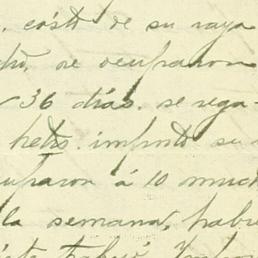 . costó de su raya
se ocuparon
36 días. se rega-
hets. importó su
cuparon á 10 much
la semana, habi
trabajó